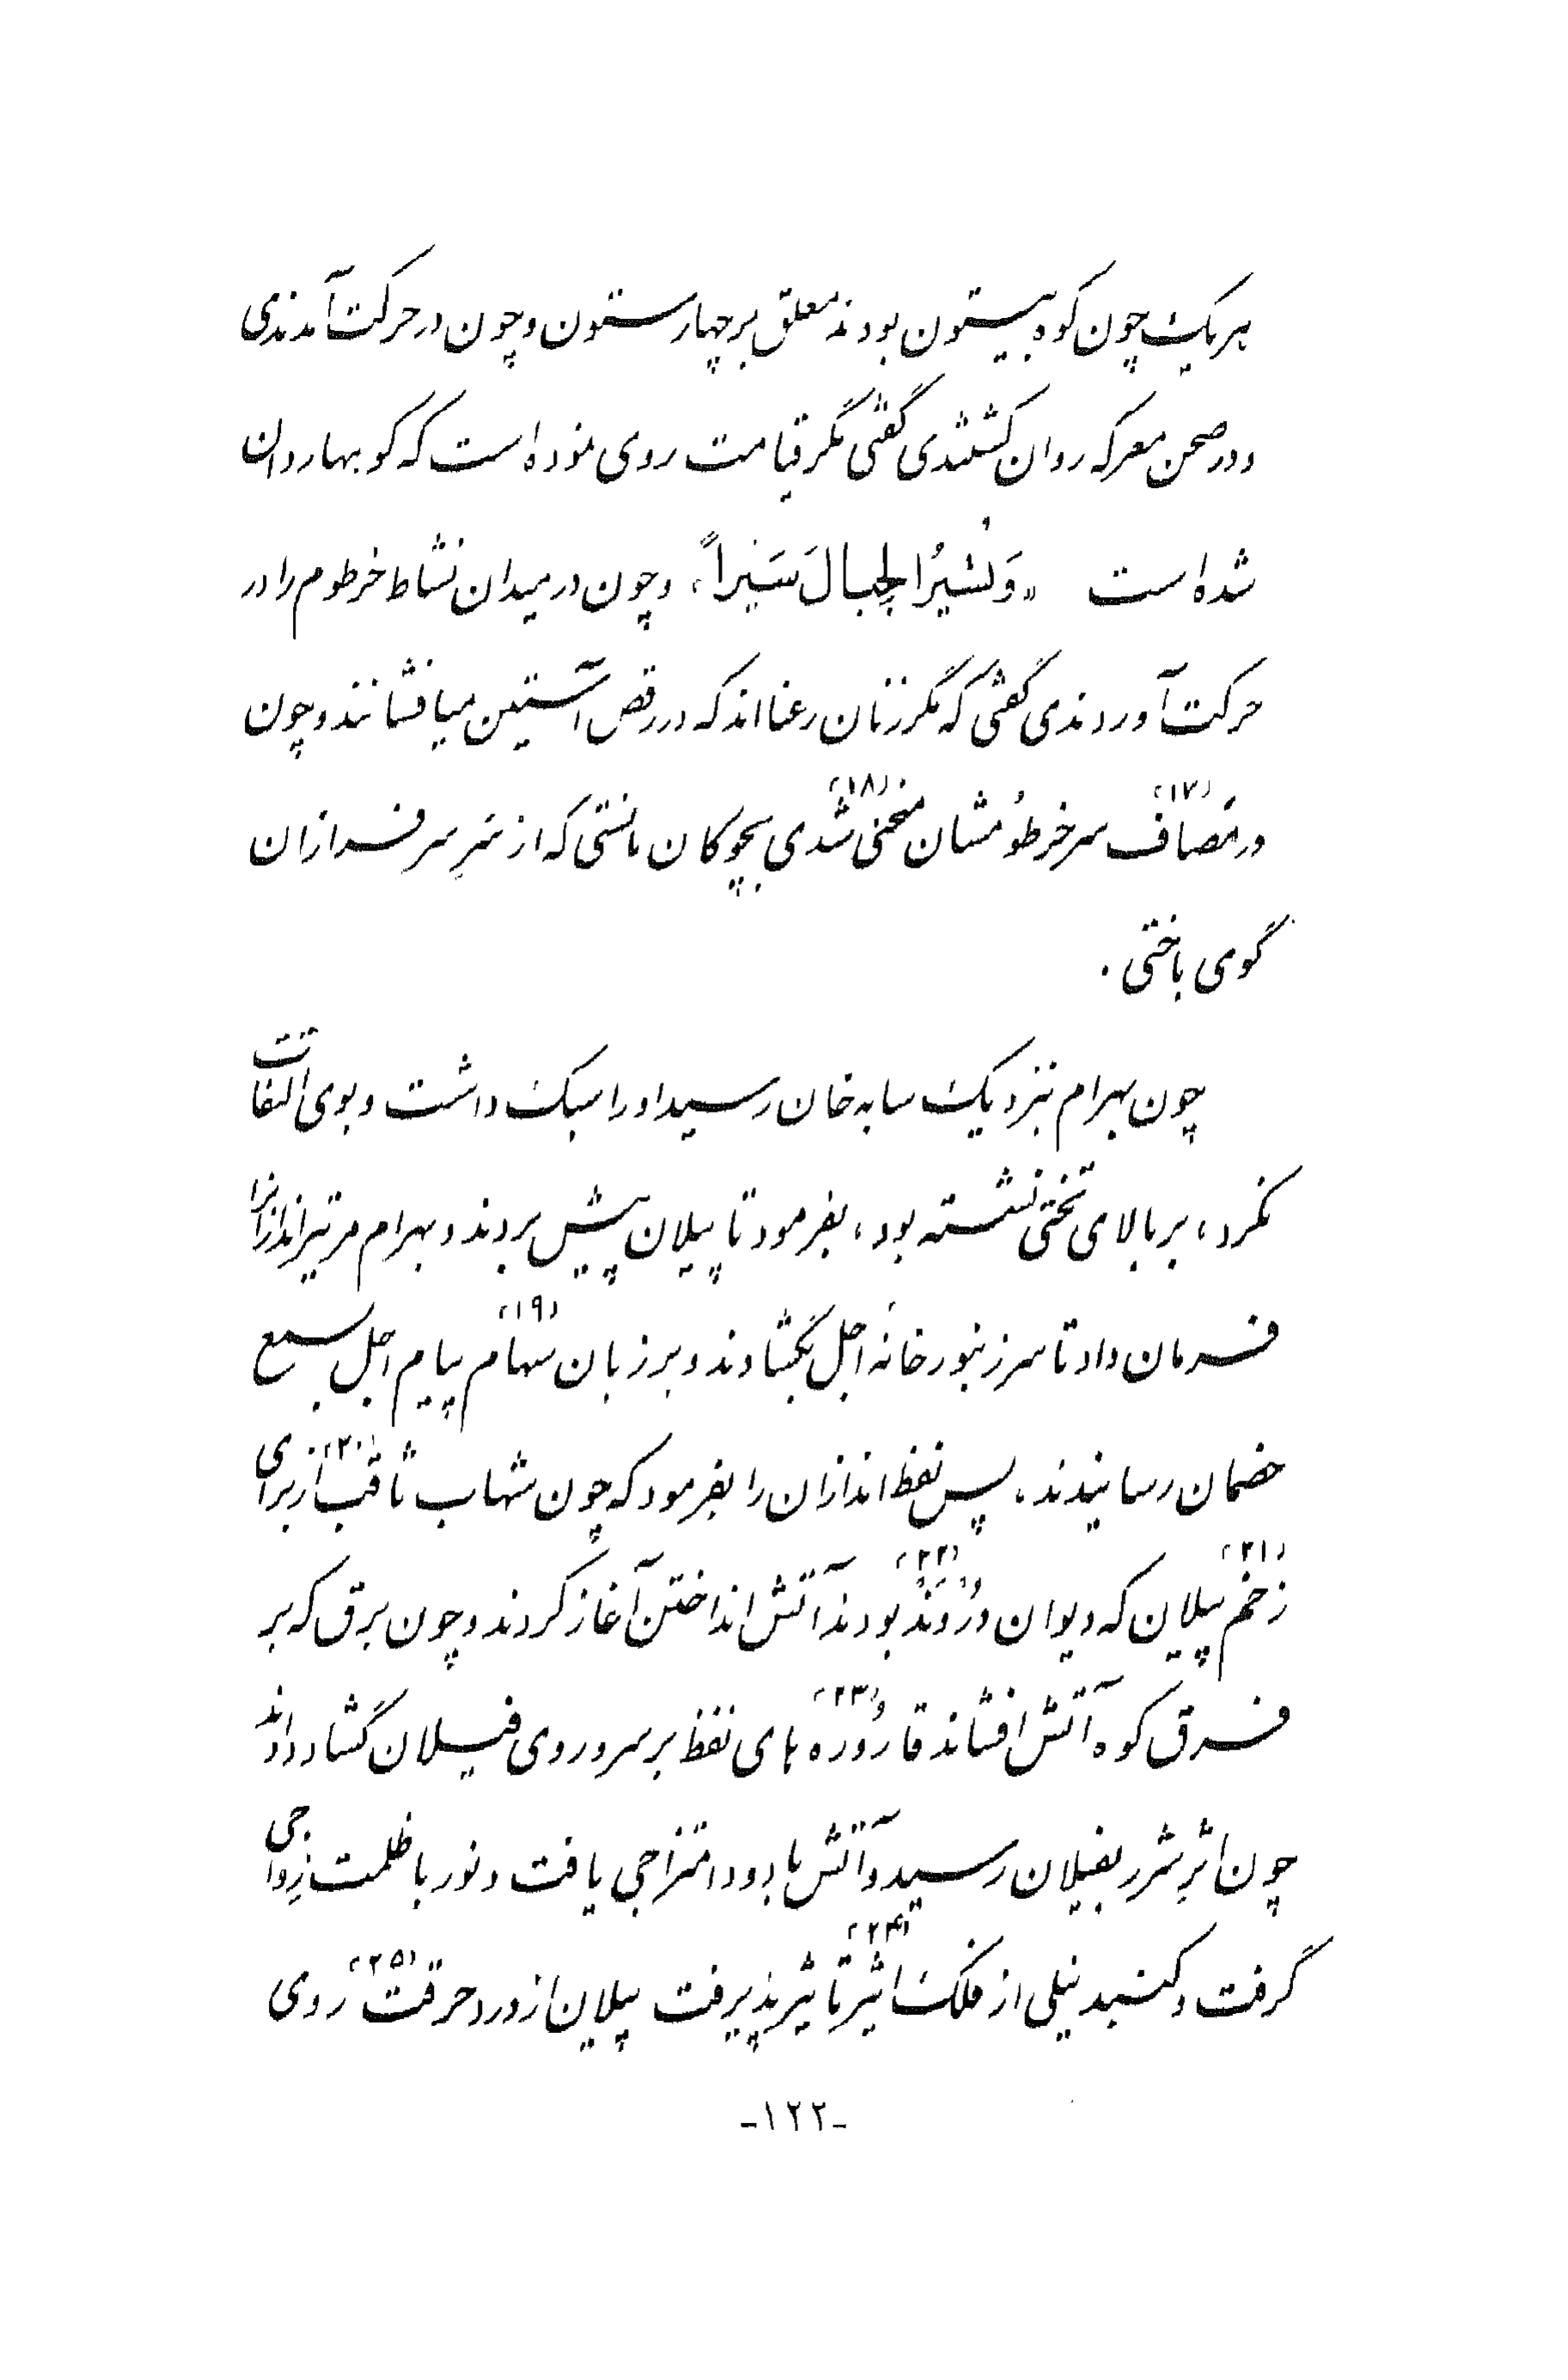 هریک چون کوه بیستون بودند معلق بر چهار ستون و چون در حرکت آمدندی
و در صحن معرکه روان گشتندی گفتی مگر قیامت روی نموده است که کوهها روان
شده است «وَ نُسَیِّرُ الجِبالَ سَیْراً» و چون در میدان نشاط خرطوم را در
حرکت آوردندی گفتی که مگر زنان رعنااند که در رقص آستین میافشانند و چون
در مَصاف (۱۷) سر خرطومُشان منحنی (۱۸) شدی بچوگان مانستی که از سَرِ سرفرازان
گوی باختی .
چون بهرام نزدیک سابه خان رسید او را سبک داشت و بوی التفات
نکرد، بر بالای تختی نشسته بود، بفرمود تا پیلان پیش بردند و بهرام مر تیراندازانرا
فرمان داد تا سر زنبورخانهٔ اجل بگشادند و بر زبان سهام (۱۹) پیام اجل بسمع
خصمان رسانیدند، پس نفط اندازان را بفرمود که چون شهاب ثاقب (۲۰) از برای
زخم (۲۱) پیلان که دیوان دَرْوَنْد (۲۲) بودند آتش انداختن آغاز کردند و چون برق که بر
فرق کوه آتش افشاند قاروره (۲۳) های نفط بر سر و روی فیلان گشاد دادند
چون اثرِ شرر بفیلان رسید و آتش با دود امتزاجی یافت و نور با ظلمت زِواجی
گرفت و گنبد نیلی از فلک اثیر (۲۴) تاثیر پذیرفت پیلان از درد حرقت (۲۵) روی
-۱۲۲-